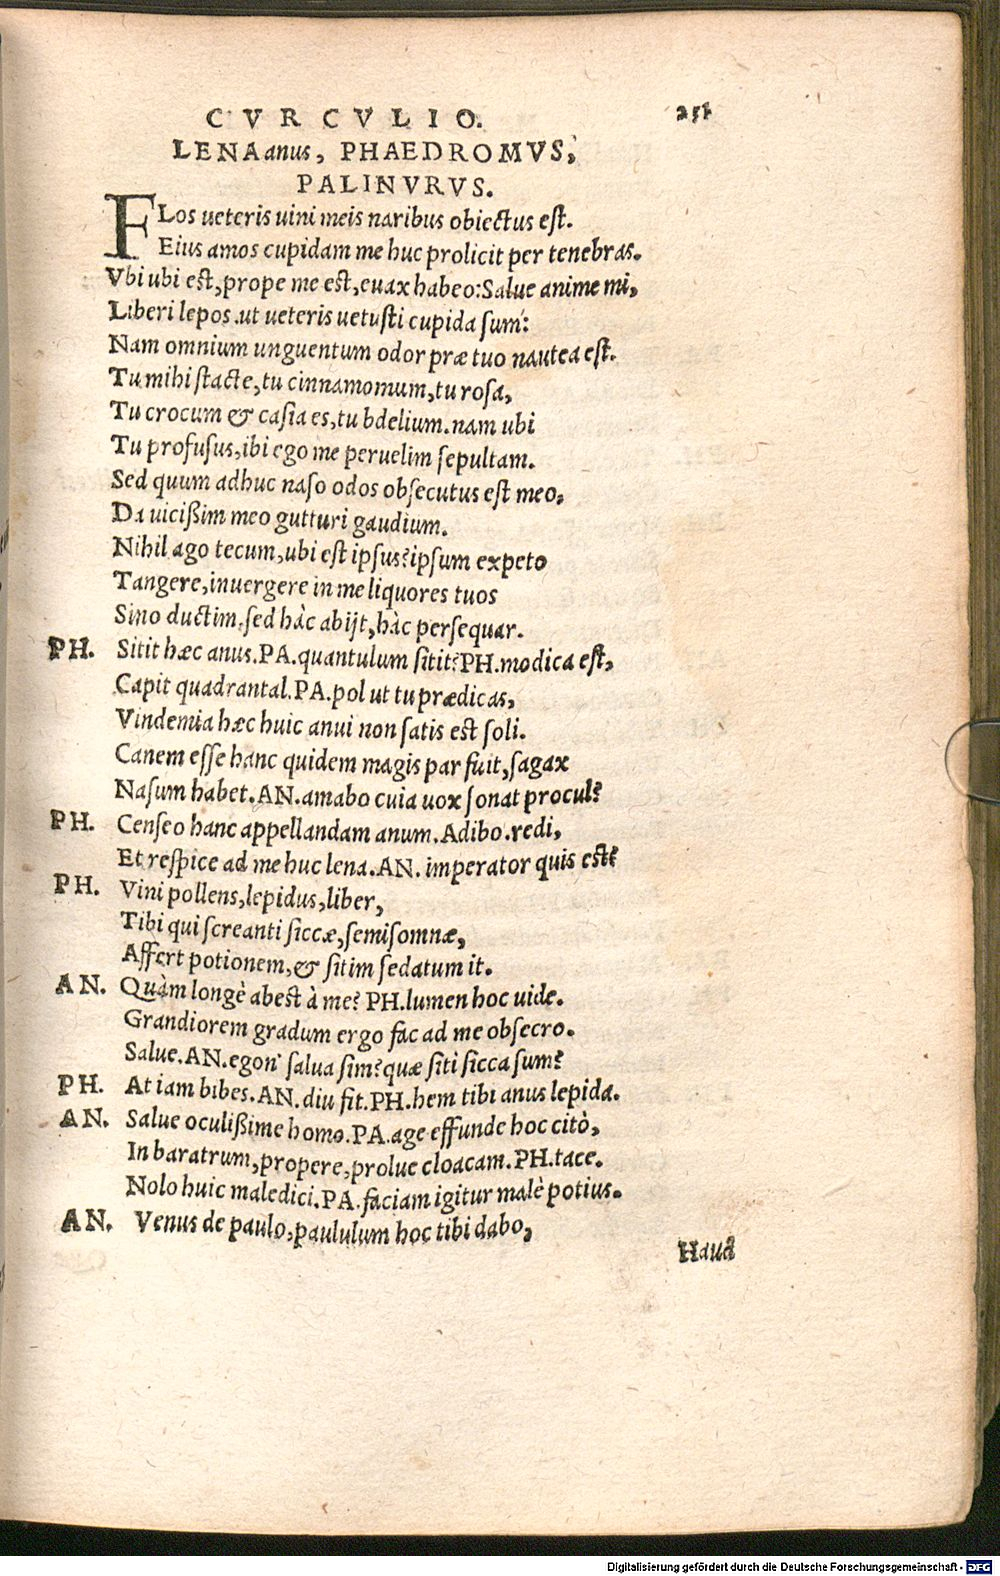 CVRCVLIO. 251
LENA anus, PHAEDROMVS,
PALINVRVS.
FLos ueteris uini meis naribus obiectus est.
Eius amos cupidam me huc prolicit per tenebras.
Vbi ubi est, prope me est, euax habeo: Salue anime mi,
Liberi lepos. ut ueteris uetusti cupida sum:
Nam omnium unguentum odor præ tuo nautea est.
Tu mihi stacte, tu cinnamomum, tu rosa,
Tu crocum & casia es, tu bdelium. nam ubi
Tu profusus, ibi ego me peruelim sepultam.
Sed quum adhuc naso odos obsecutus est meo,
Da uicißim meo gutturi gaudium.
Nihil ago tecum, ubi est ipsus? ipsum expeto
Tangere, inuergere in me liquores tuos
Sino ductim. sed hàc abijt, hàc persequar.
PH. Sitit hæc anus. PA. quantulum sitit? PH. modica est,
Capit quadrantal. PA. pol ut tu prædicas,
Vindemia hæc huic anui non satis est soli.
Canem esse hanc quidem magis par fuit, sagax
Nasum habet. AN. amabo cuia uox sonat procul?
PH. Censeo hanc appellandam anum. Adibo. redi,
Et respice ad me huc lena. AN. imperator quis est?
PH. Vini pollens, lepidus, liber,
Tibi qui screanti siccæ, semisomnæ,
Affert potionem, & sitim sedatum it.
AN. Quàm longè abest à me? PH. lumen hoc uide.
Grandiorem gradum ergo fac ad me obsecro.
Salue. AN. egon' salua sim? quæ siti sicca sum?
PH. At iam bibes. AN. diu fit. PH. hem tibi anus lepida.
AN. Salue oculißime homo. PA. age effunde hoc citò,
In baratrum, propere, prolue cloacam. PH. tace.
Nolo huic maledici. PA. faciam igitur malè potius.
AN. Venus de paulo, paululum hoc tibi dabo,
Haud
Digitalisierung gefördert durch die Deutsche Forschungsgemeinschaft - DFG